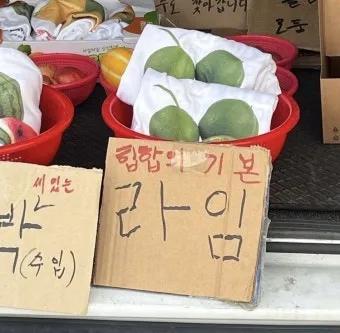 찾아갑니다
씨 있는
박
(수입)
힙합의 기본
라임